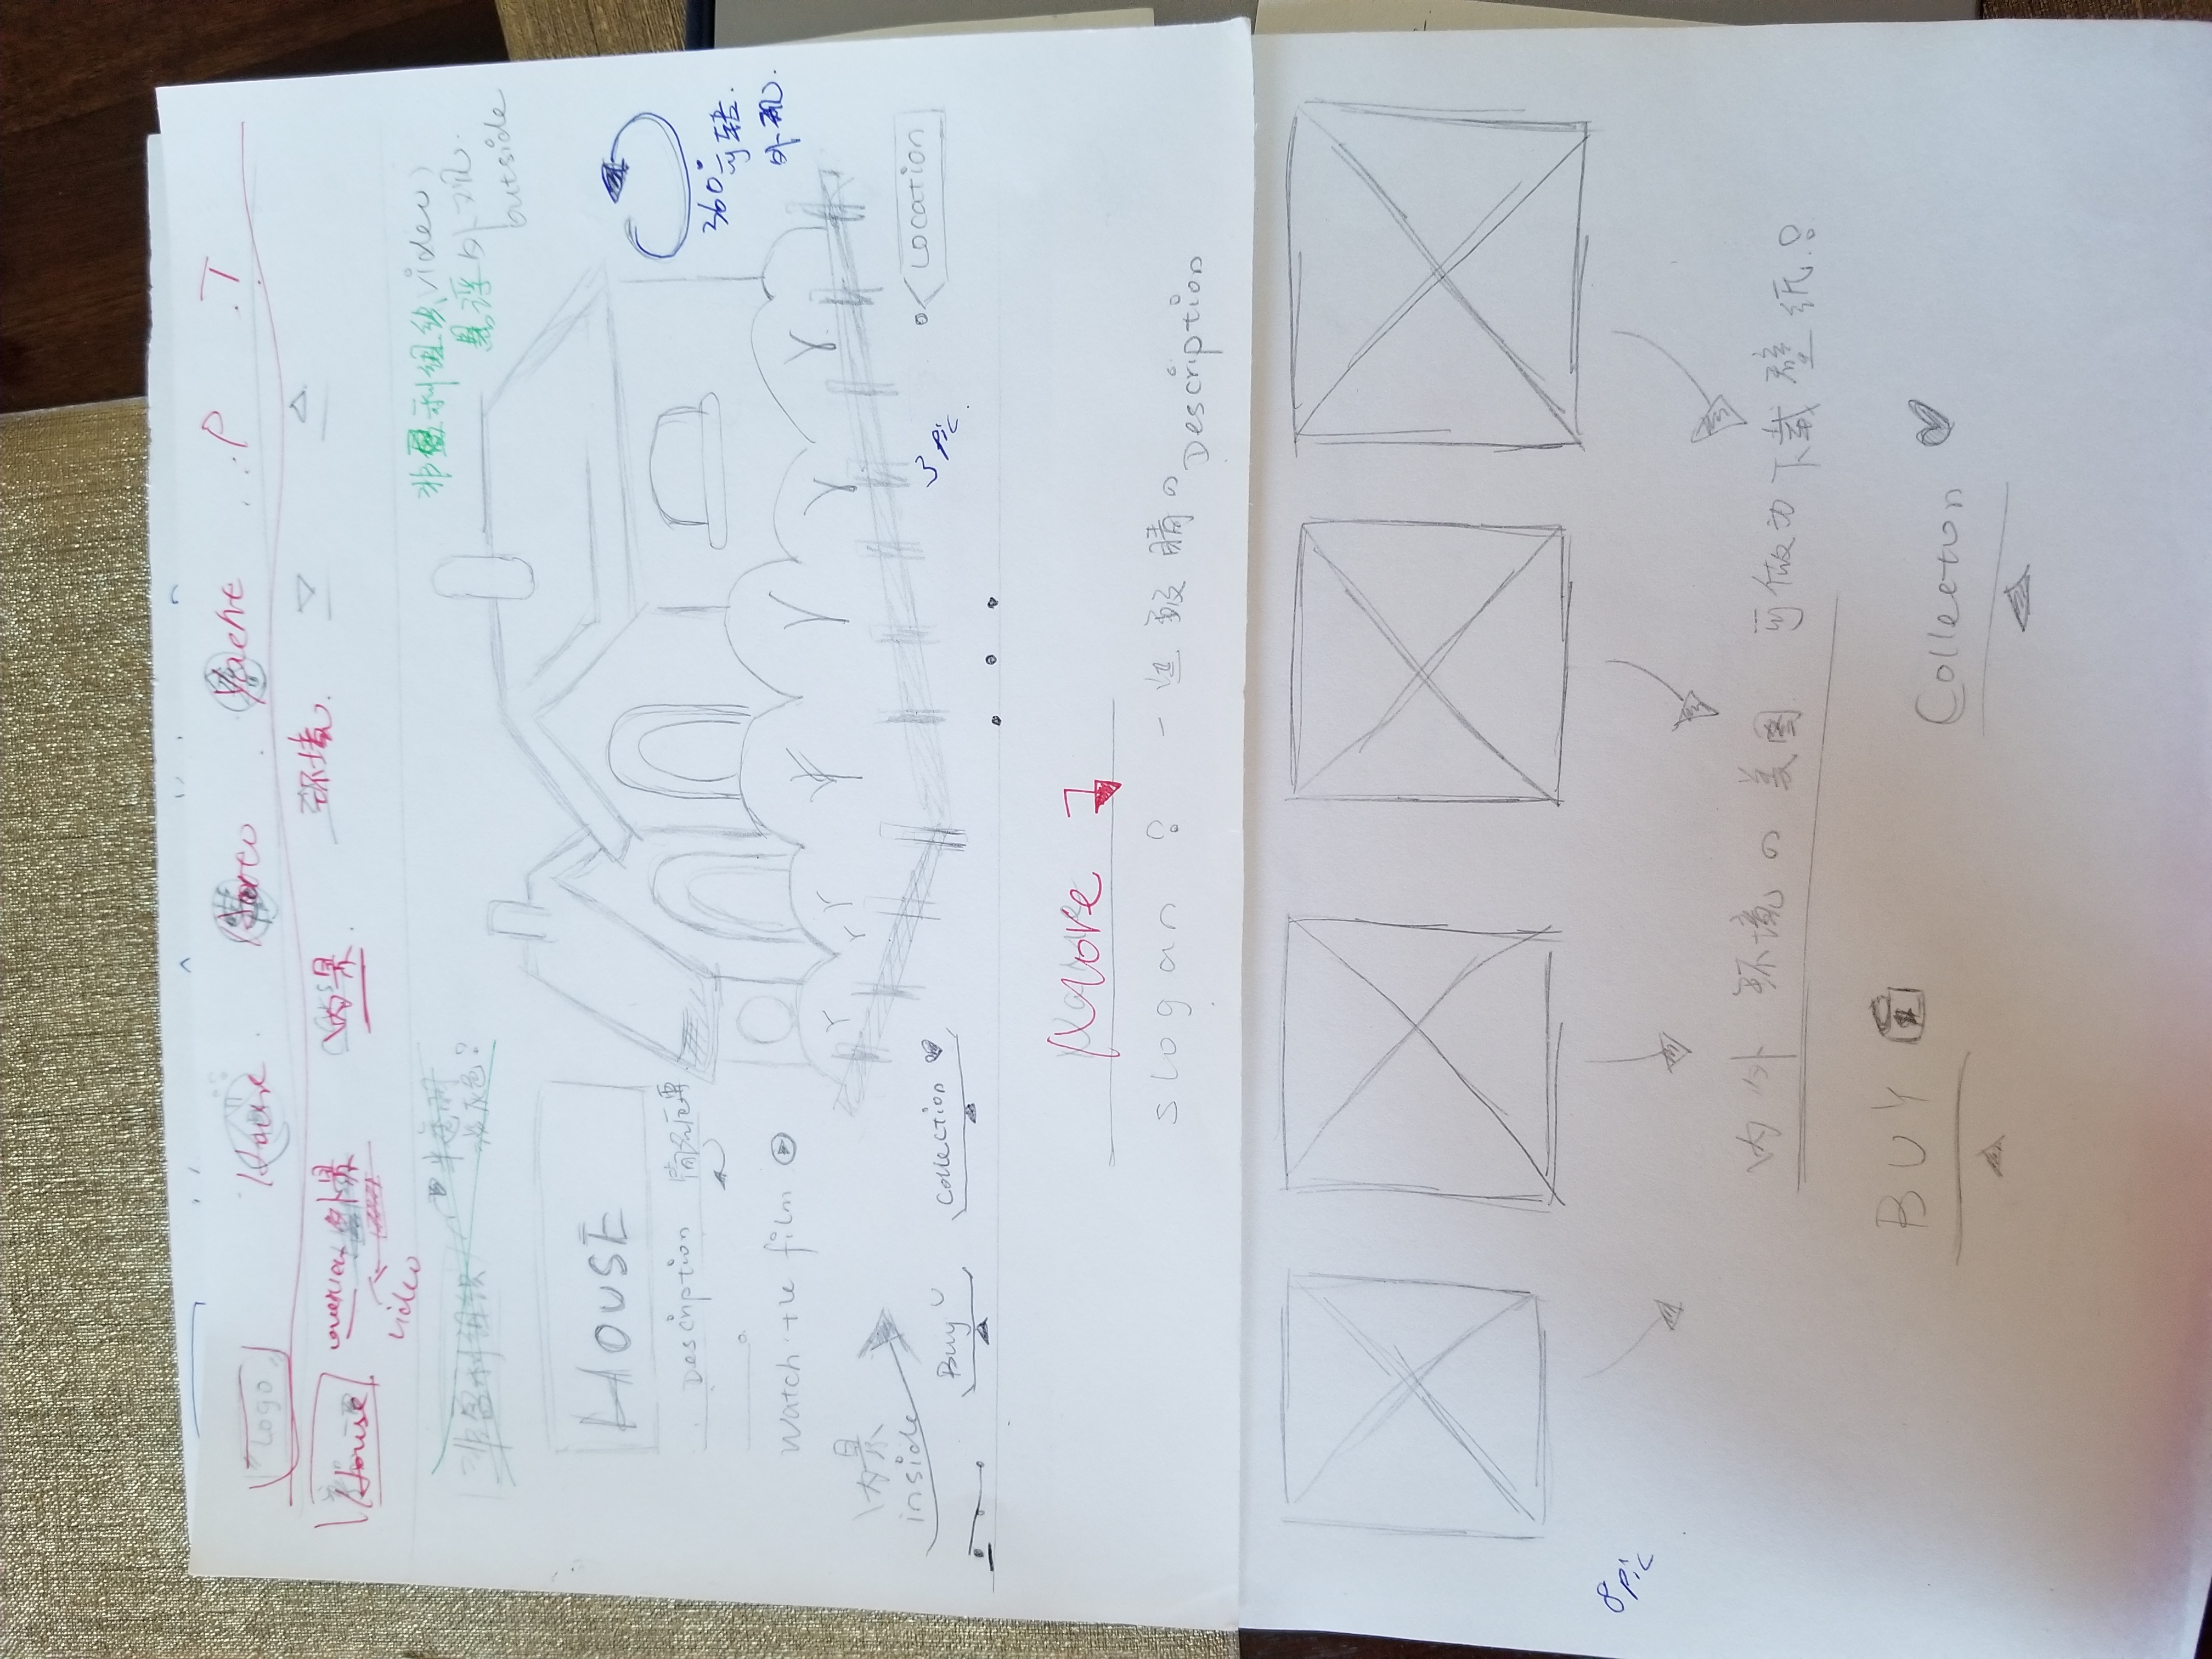 Logo House Yacht P T
House overview 外景 内景 环境.
video
非盈利组织 半透明
灰色?
非盈利组织 video
悬浮 外观.
outside
HOUSE
Description 简洁扼要
Watch the film
360°可转.
外观.
内景
inside
Buy Collection
3 pic.
Location
More
slogan ? 一些 Description
8 pic
内外 环境の美图 可做为下载壁纸?
BUY
Collection